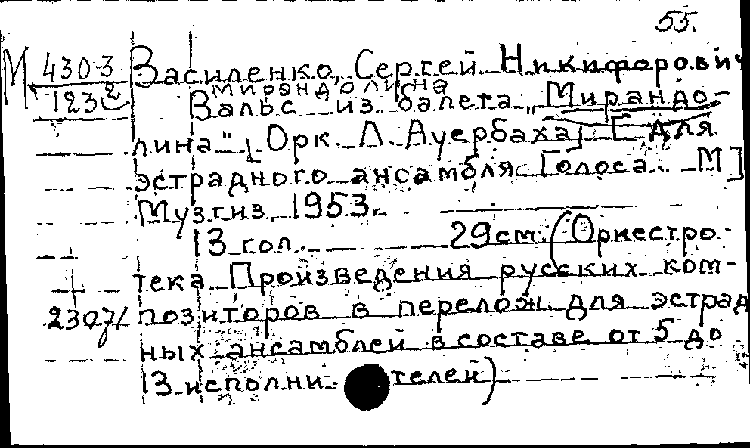 55.
М 430-3 Василенко, Сергей Никифорович
мирандолина
1232 Вальс из балета „Мирандо-
лина". [Орк. Л. Ауербаха] [Для
эстрадного ансамбля. Голоса. М]
Музгиз, 1953.
13 гол. 29 см. (Оркестро-
тека. Произведения русских ком-
позиторов в перелож. для эстрад
ных ансамблей в составе от 5 до
13 исполни- телей)